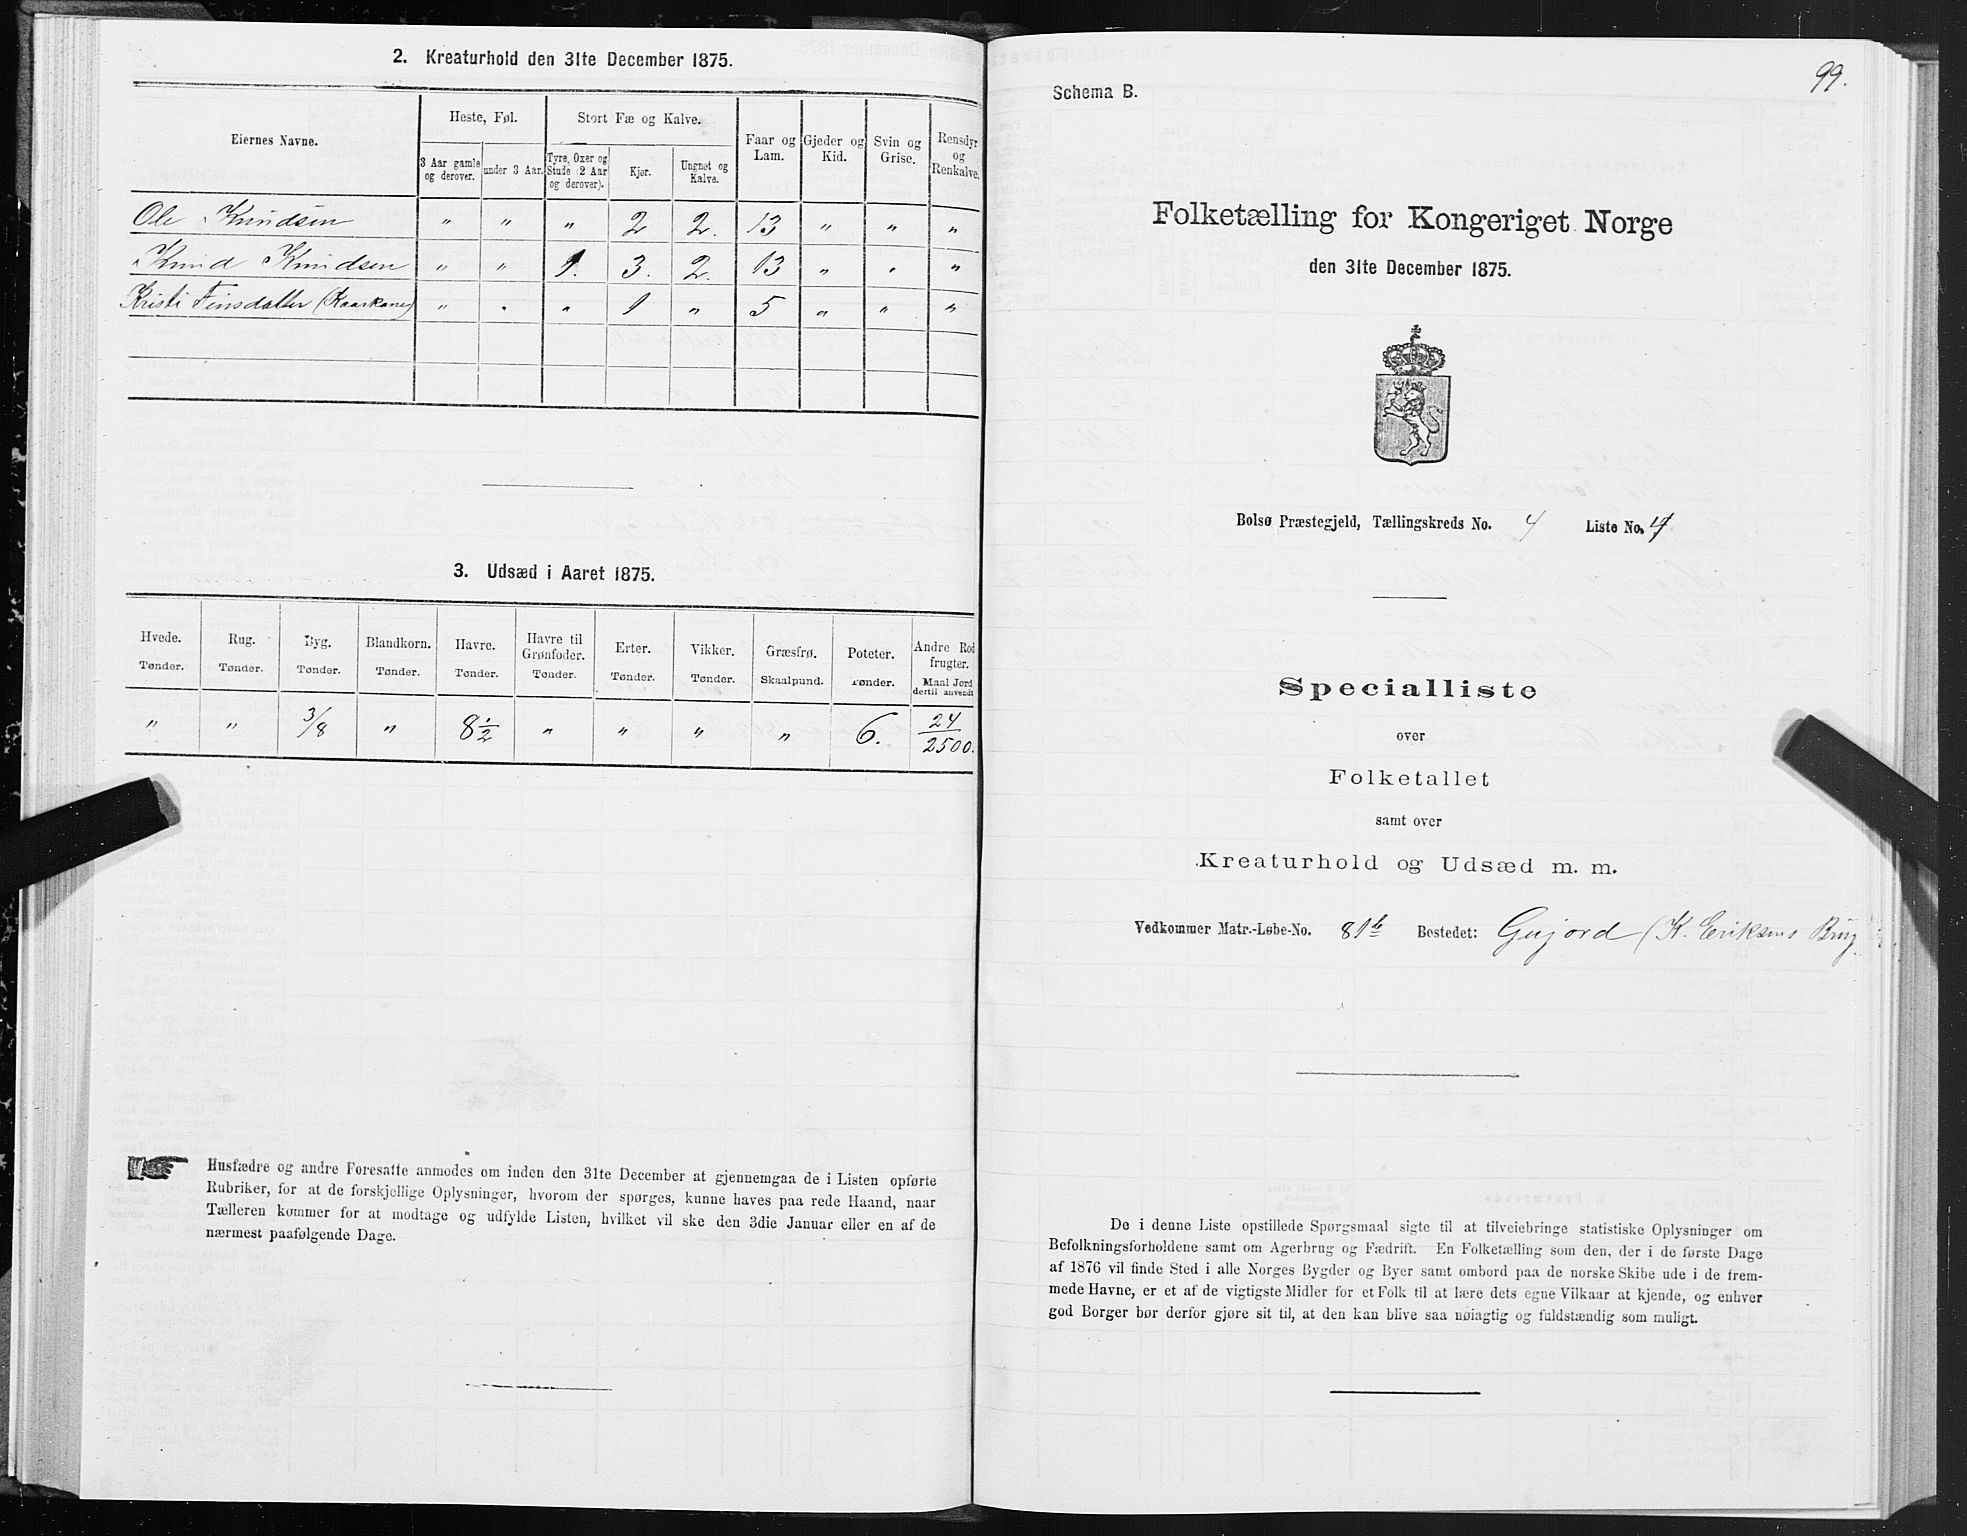 2. Kreaturhold den 31te December 1875.
Eiernes Navne.
Heste, Føl.
Stort Fæ og Kalve.
Faar og Lam.
Gjeder og Kid.
Svin og Grise.
Rensdyr og Renkalve.
3 Aar gamle og derover.
under 3 Aar.
Tyre, Oxer og Stude (2 Aar og derover).
Kjør.
Ungnøt og Kalve.
Ole Knudsen " " " 2 2. 13 " " "
Knud Knudsen " " 1. 3. 2. 13 " " "
Kristi Finsdatter (Kaarkone) " " " 1 " 5 " " "
3. Udsæd i Aaret 1875.
Hvede. Tønder.
Rug. Tønder.
Byg. Tønder.
Blandkorn. Tønder.
Havre. Tønder.
Havre til Grønfoder. Tønder.
Erter. Tønder.
Vikker. Tønder.
Græsfrø. Skaalpund.
Poteter. Tønder.
Andre Rodfrugter. Maal Jord dertil anvendt
" " 3/8 " 8 1/2 " " " " 6. 24/2500.
Husfædre og andre Foresatte anmodes om inden den 31te December at gjennemgaa de i Listen opførte
Rubriker, for at de forskjellige Oplysninger, hvorom der spørges, kunne haves paa rede Haand, naar
Tælleren kommer for at modtage og udfylde Listen, hvilket vil ske den 3die Januar eller en af de
nærmest paafølgende Dage.
99.
Schema B.
Folketælling for Kongeriget Norge
den 31te December 1875.
Bolsø Præstegjeld, Tællingskreds No. 4 Liste No. 4
Specialliste
over
Folketallet
samt over
Kreaturhold og Udsæd m. m.
Vedkommer Matr.-Løbe-No. 81b Bostedet: Gujord (K. Eriksens Brug
De i denne Liste opstillede Spørgsmaal sigte til at tilveiebringe statistiske Oplysninger om
Befolkningsforholdene samt om Agerbrug og Fædrift. En Folketælling som den, der i de første Dage
af 1876 vil finde Sted i alle Norges Bygder og Byer samt ombord paa de norske Skibe ude i de frem-
mede Havne, er et af de vigtigste Midler for et Folk til at lære dets egne Vilkaar at kjende, og enhver
god Borger bør derfor gjøre sit til, at den kan blive saa nøiagtig og fuldstændig som muligt.